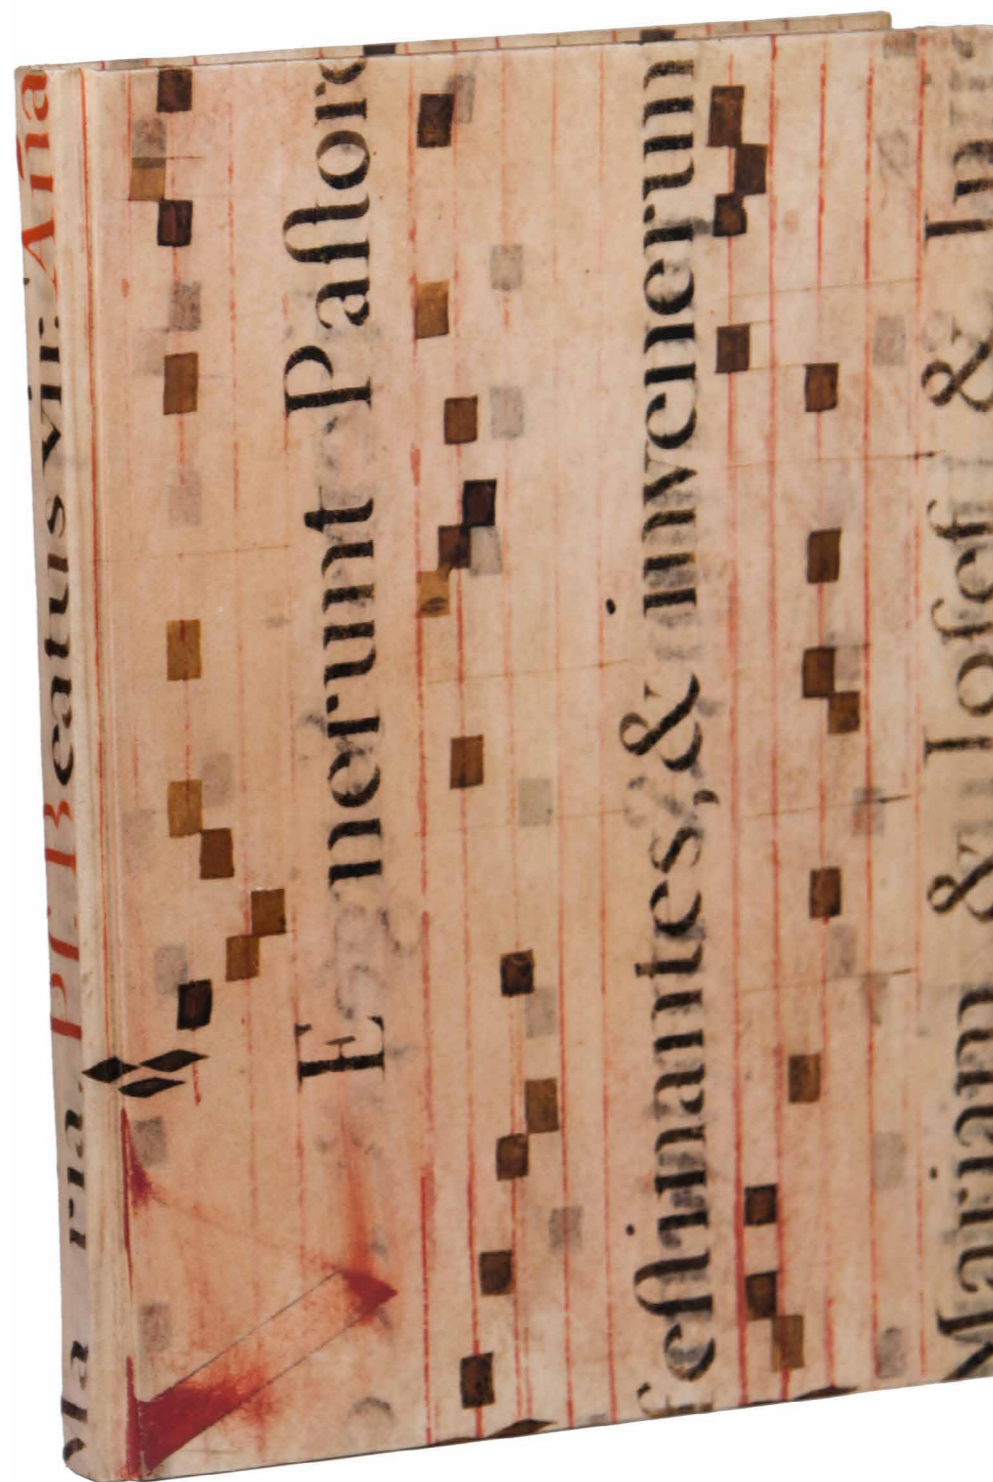 Ma ria. Beatus vir. Aña
E nerunt Paſtore
feſtinantes, & invenerun
Mariam & Ioſef &